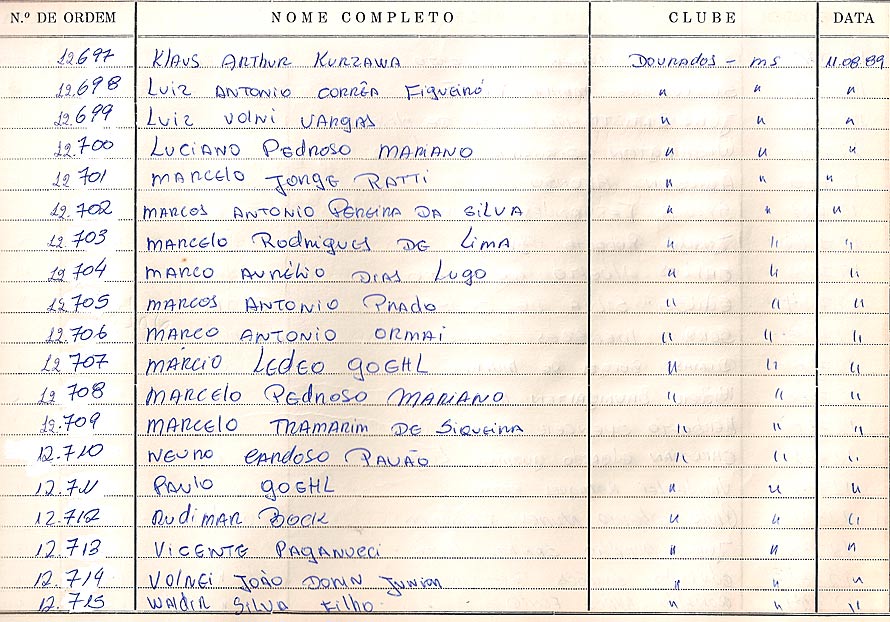 N.º DE ORDEM NOME COMPLETO CLUBE DATA
12.697 Klaus Arthur Kurzawa Dourados - MS 11.08.89
12.698 Luiz Antonio Corrêa Figueiró " " "
12.699 Luiz Volni Vargas " " "
12.700 Luciano Pedroso Mariano " " "
12.701 Marcelo Jorge Ratti " " "
12.702 Marcos Antonio Pereira da Silva " " "
12.703 Marcelo Rodrigues de Lima " " "
12.704 Marco Aurélio Dias Lugo " " "
12.705 Marcos Antonio Prado " " "
12.706 Marco Antonio Ormai " " "
12.707 Márcio Ledeo Goehl " " "
12.708 Marcelo Pedroso Mariano " " "
12.709 Marcelo Tramarim de Siqueira " " "
12.710 Neuro Cardoso Pavão " " "
12.711 Paulo Goehl " " "
12.712 Rudimar Bock " " "
12.713 Vicente Paganucci " " "
12.714 Volnei João Donin Junior " " "
12.715 Waldir Silva Filho " " "